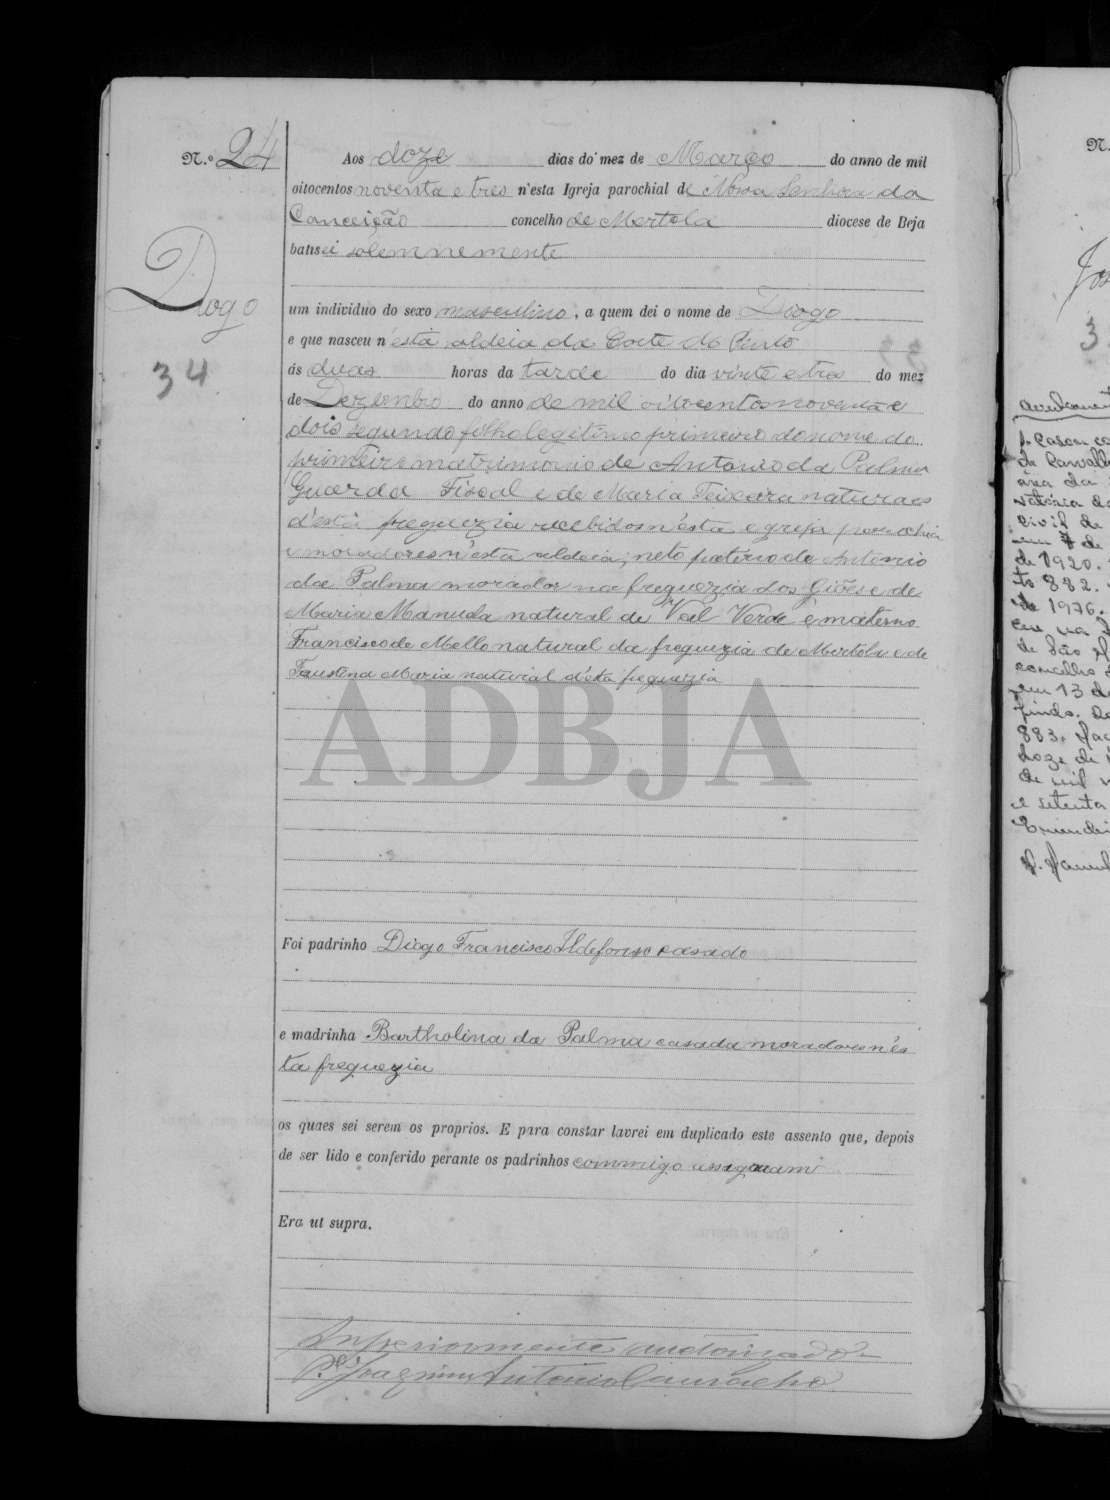 N.º 24
Diogo
34
Aos doze dias do mez de Março do anno de mil
oitocentos noventa e tres n'esta Igreja parochial de Nossa Senhora da
Conceição concelho de Mertola diocese de Beja
batisei solemnemente
um individuo do sexo masculino, a quem dei o nome de Diogo
e que nasceu n'esta aldeia da Corte do Pinto
ás duas horas da tarde do dia vinte e tres do mez
de Dezembro do anno de mil oitocentos noventa e
dois segundo filho legitimo primeiro do nome do
primeiro matrimonio de Antonio da Palma
Guarda Fiscal e de Maria Teixeira naturaes
d'esta freguezia recebidos n'esta egreja parochial
e moradores n'esta aldeia; neto paterno de Antonio
da Palma morador na freguezia dos Giões e de
Maria Manuela natural de Val Verde e materno
Francisco de Mello natural da freguezia de Mertola e de
Faustina Maria natural d'esta freguezia
ADBJA
Foi padrinho Diogo Francisco Ildefonso casado
e madrinha Bartholina da Palma casada moradores n'es
ta freguezia
os quaes sei serem os proprios. E para constar lavrei em duplicado este assento que, depois
de ser lido e conferido perante os padrinhos commigo assignam
Era ut supra.
Superiormente auctorizado
P.e Joaquim Antonio Carvalho
N.
3
f. Casou co
de Carvalh
civil de
em 7 de
de 1920.
to 882.
de 1976.
de São
concelho
em 13 de
findo.
883.
doze de
de mil
e setenta